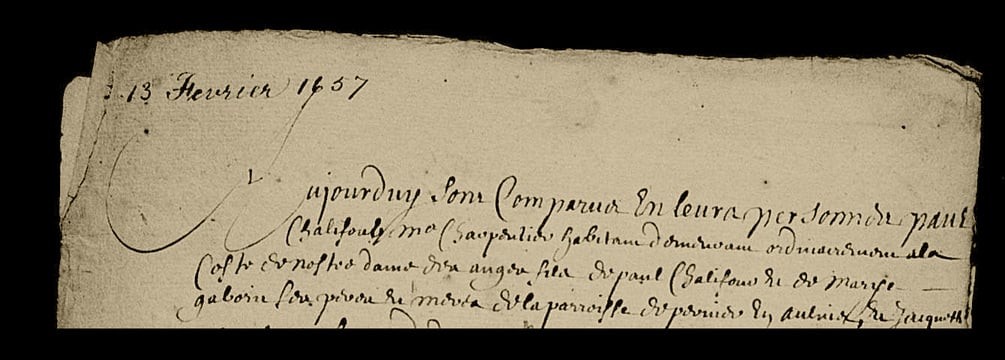 13 Fevrier 1657
Aujourduy sont Comparus En leurs personnes paul
Chalifoulz me Charpentier habitant demeurant ordinairement a la
Coste de nostre dame des anges fils de paul Chalifou et de Marie
gaborin ses pere et mere de la parroisse de perinie En aulnis, et Jacquette